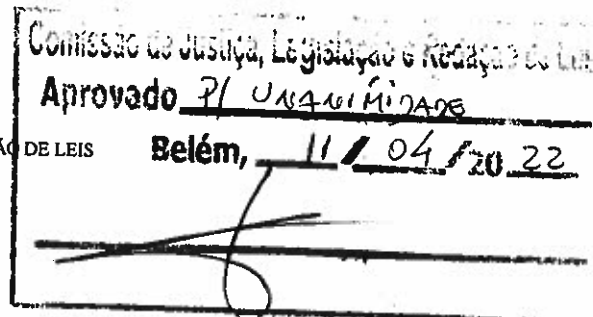 Comissão de Justiça, Legislação e Redação de Leis
Aprovado P/ UNANIMIDADE
ÃO DE LEIS
Belém, 11 / 04 / 20 22